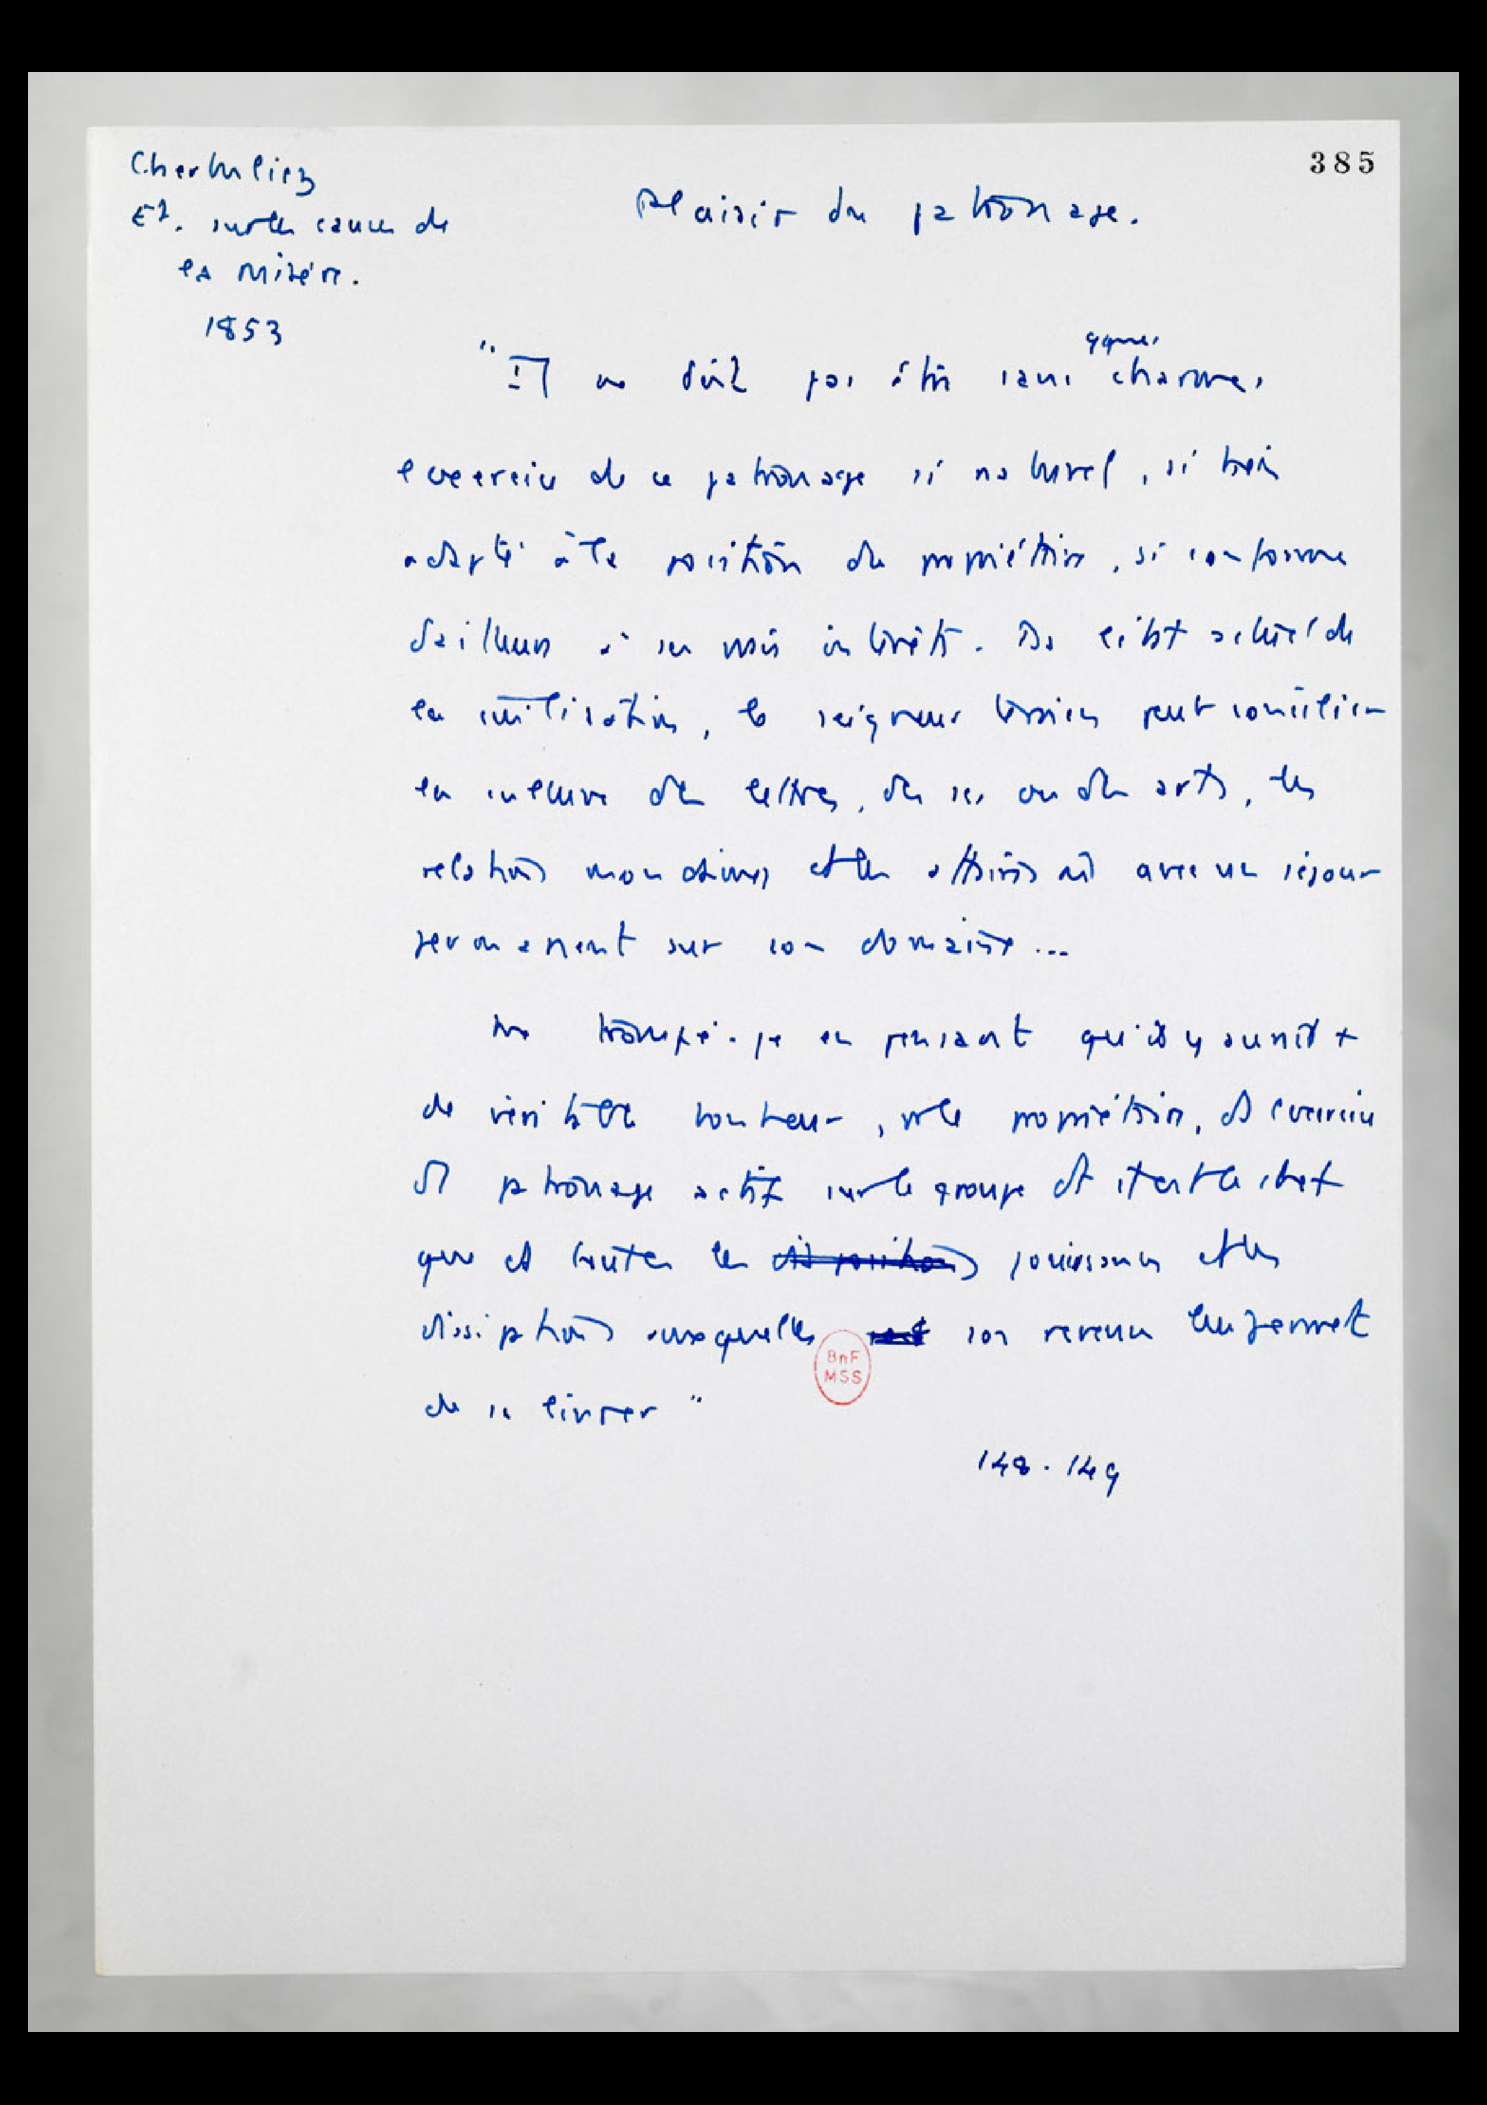 385
Cherbuliez
Et. sur les causes de
la misère.
1853
Plaisir du patronage.
"Il ne doit pas être sans qques charmes,
l'exercice de ce patronage si naturel, si bien
adapté à la position du propriétaire, si conforme
d'ailleurs à ses vrais intérêts. Ds l'état actuel de
la civilisation, le seigneur terrien peut concilier
la culture des lettres, des sc. ou des arts, les
relations mondaines et les affaires avec un séjour
permanent sur son domaine...
Me trompé-je en pensant qu'il y aurait +
de véritable bonheur, le propriétaire, ds l'exercice
d'1 patronage actif sur le groupe dt il est le chef
que ds toutes les jouissances et les
dissipations auxquelles son revenu lui permet
de se livrer"
148-149
BnF
MSS